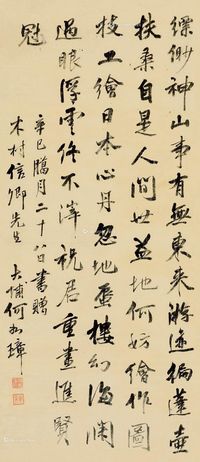 縹緲神山事有無東来游迹徧蓬壺
扶桑自是人間世益地何妨繪作圖
技工繪日本心丹忽地蜃樓幻海瀾
過眼浮雲終不滓祝君重畫進賢
冠
辛巳臈月二十八日書贈
木村信卿先生
大埔何如璋